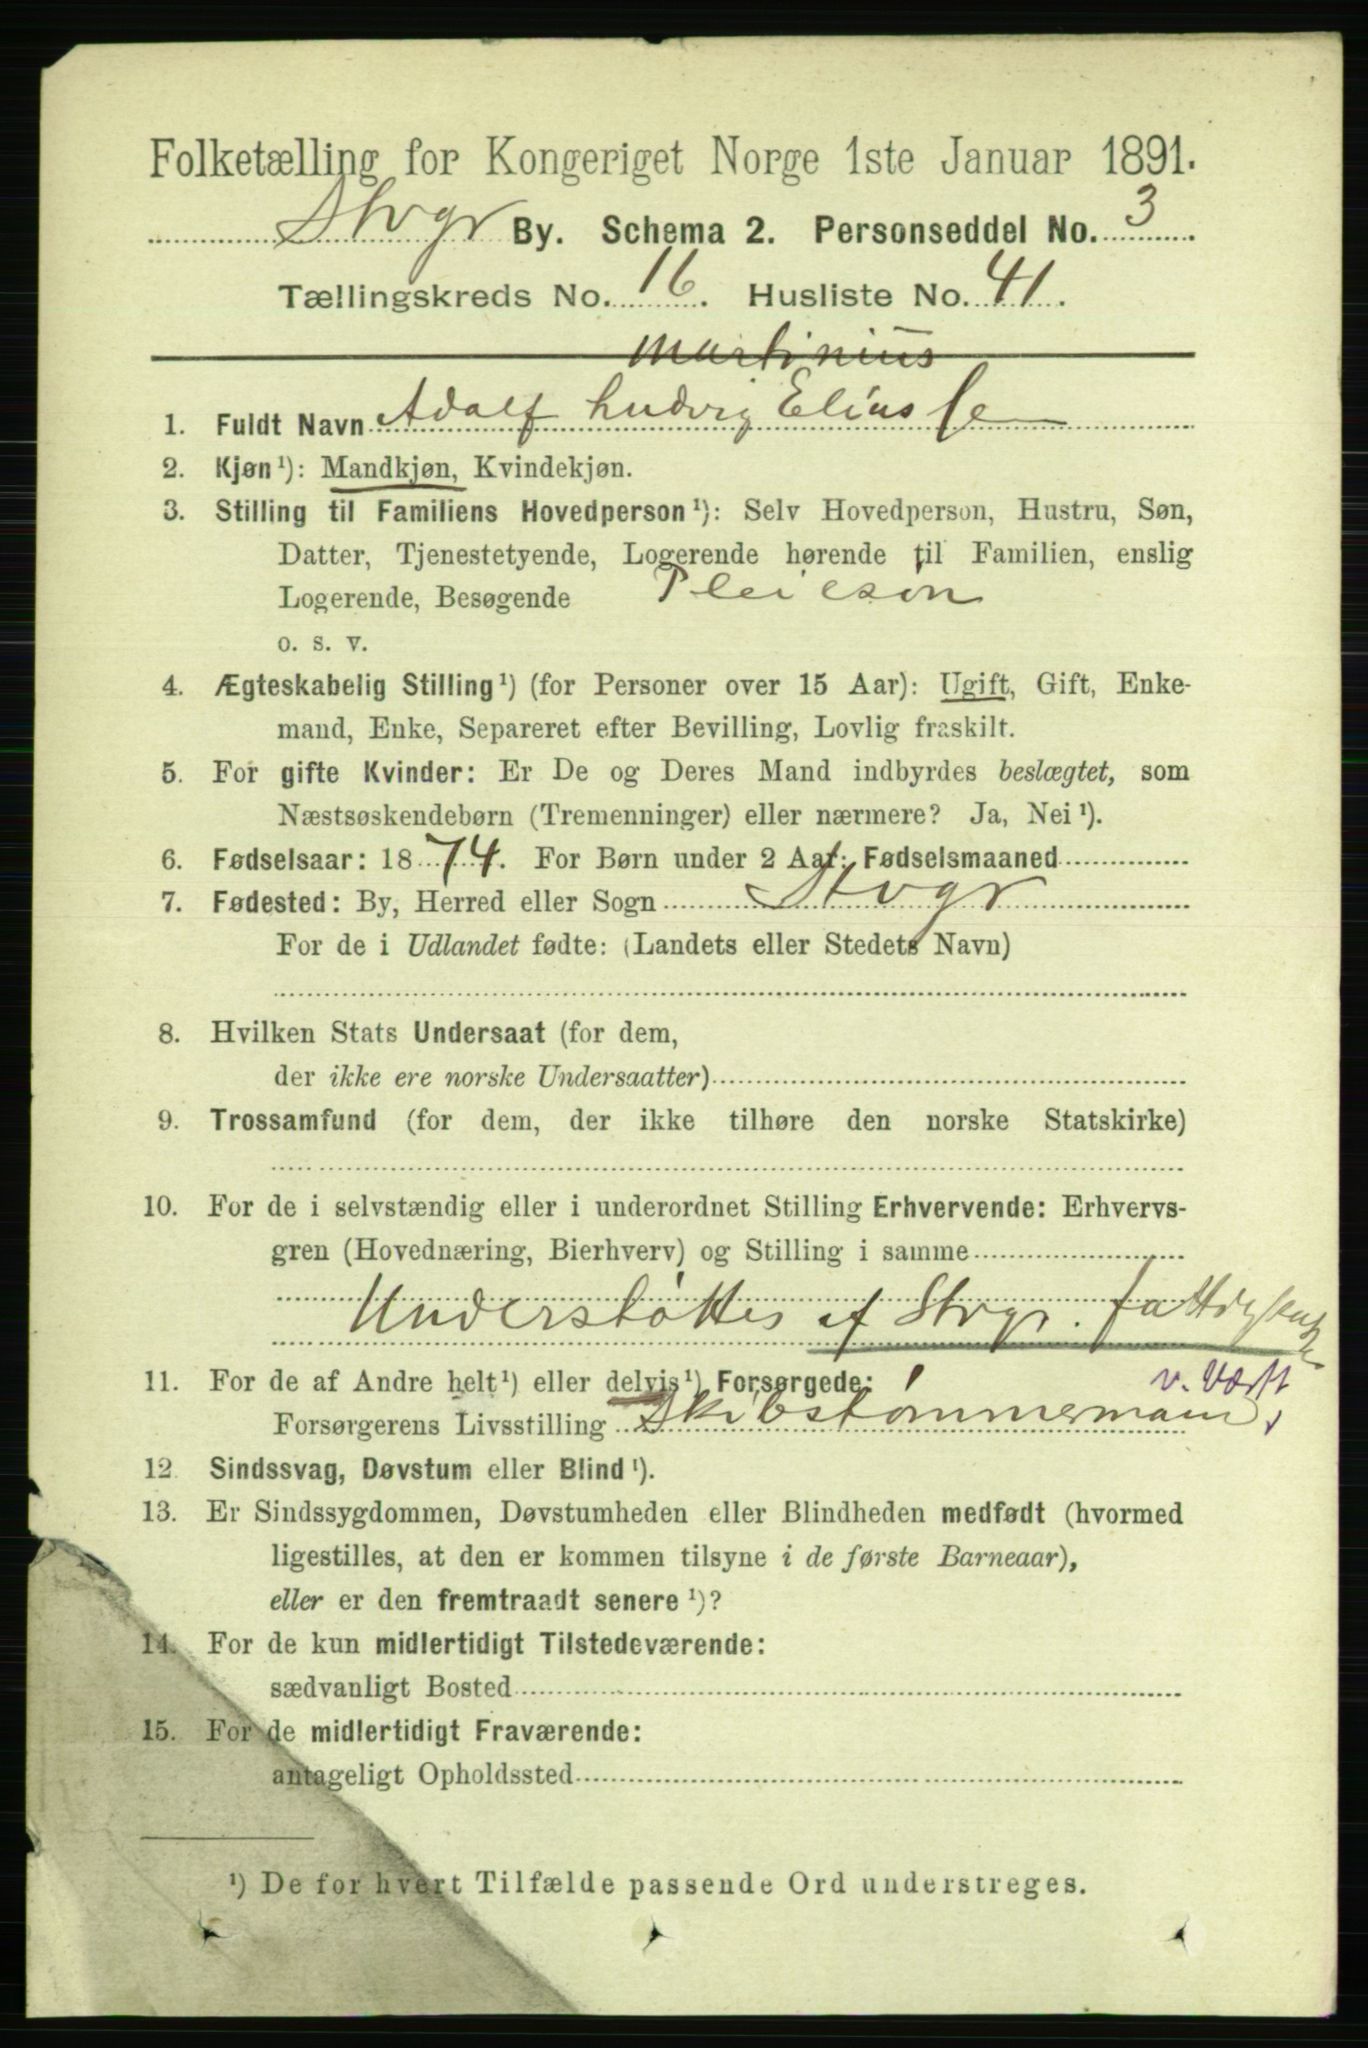 Folketælling for Kongeriget Norge 1ste Januar 1891.
Stvgr By. Schema 2. Personseddel No. 3
Tællingskreds No. 16. Husliste No. 41.
Martinius
1. Fuldt Navn Adolf Ludvig Eliasse
2. Kjøn ¹): Mandkjøn, Kvindekjøn.
3. Stilling til Familiens Hovedperson ¹): Selv Hovedperson, Hustru, Søn,
Datter, Tjenestetyende, Logerende hørende til Familien, enslig
Logerende, Besøgende Pleieson
o. s. v.
4. Ægteskabelig Stilling ¹) (for Personer over 15 Aar): Ugift, Gift, Enke-
mand, Enke, Separeret efter Bevilling, Lovlig fraskilt.
5. For gifte Kvinder: Er De og Deres Mand indbyrdes beslægtet, som
Næstsøskendebørn (Tremenninger) eller nærmere? Ja, Nei ¹).
6. Fødselsaar: 1874. For Børn under 2 Aar: Fødselsmaaned
7. Fødested: By, Herred eller Sogn Stvgr
For de i Udlandet fødte: (Landets eller Stedets Navn)
8. Hvilken Stats Undersaat (for dem,
der ikke ere norske Undersaatter)
9. Trossamfund (for dem, der ikke tilhøre den norske Statskirke)
10. For de i selvstændig eller i underordnet Stilling Erhvervende: Erhvervs-
gren (Hovednæring, Bierhverv) og Stilling i samme
Understøttes af Stvgr. fattigkasse
11. For de af Andre helt ¹) eller delvis ¹) Forsørgede: v. Værft
Forsørgerens Livsstilling Skibstømmermand,
12 Sindssvag, Døvstum eller Blind ¹).
13. Er Sindssygdommen, Døvstumheden eller Blindheden medfødt (hvormed
ligestilles, at den er kommen tilsyne i de første Barneaar),
eller er den fremtraadt senere ¹)?
14. For de kun midlertidigt Tilstedeværende:
sædvanligt Bosted
15. For de midlertidigt Fraværende:
antageligt Opholdssted
¹) De for hvert Tilfælde passende Ord understreges.